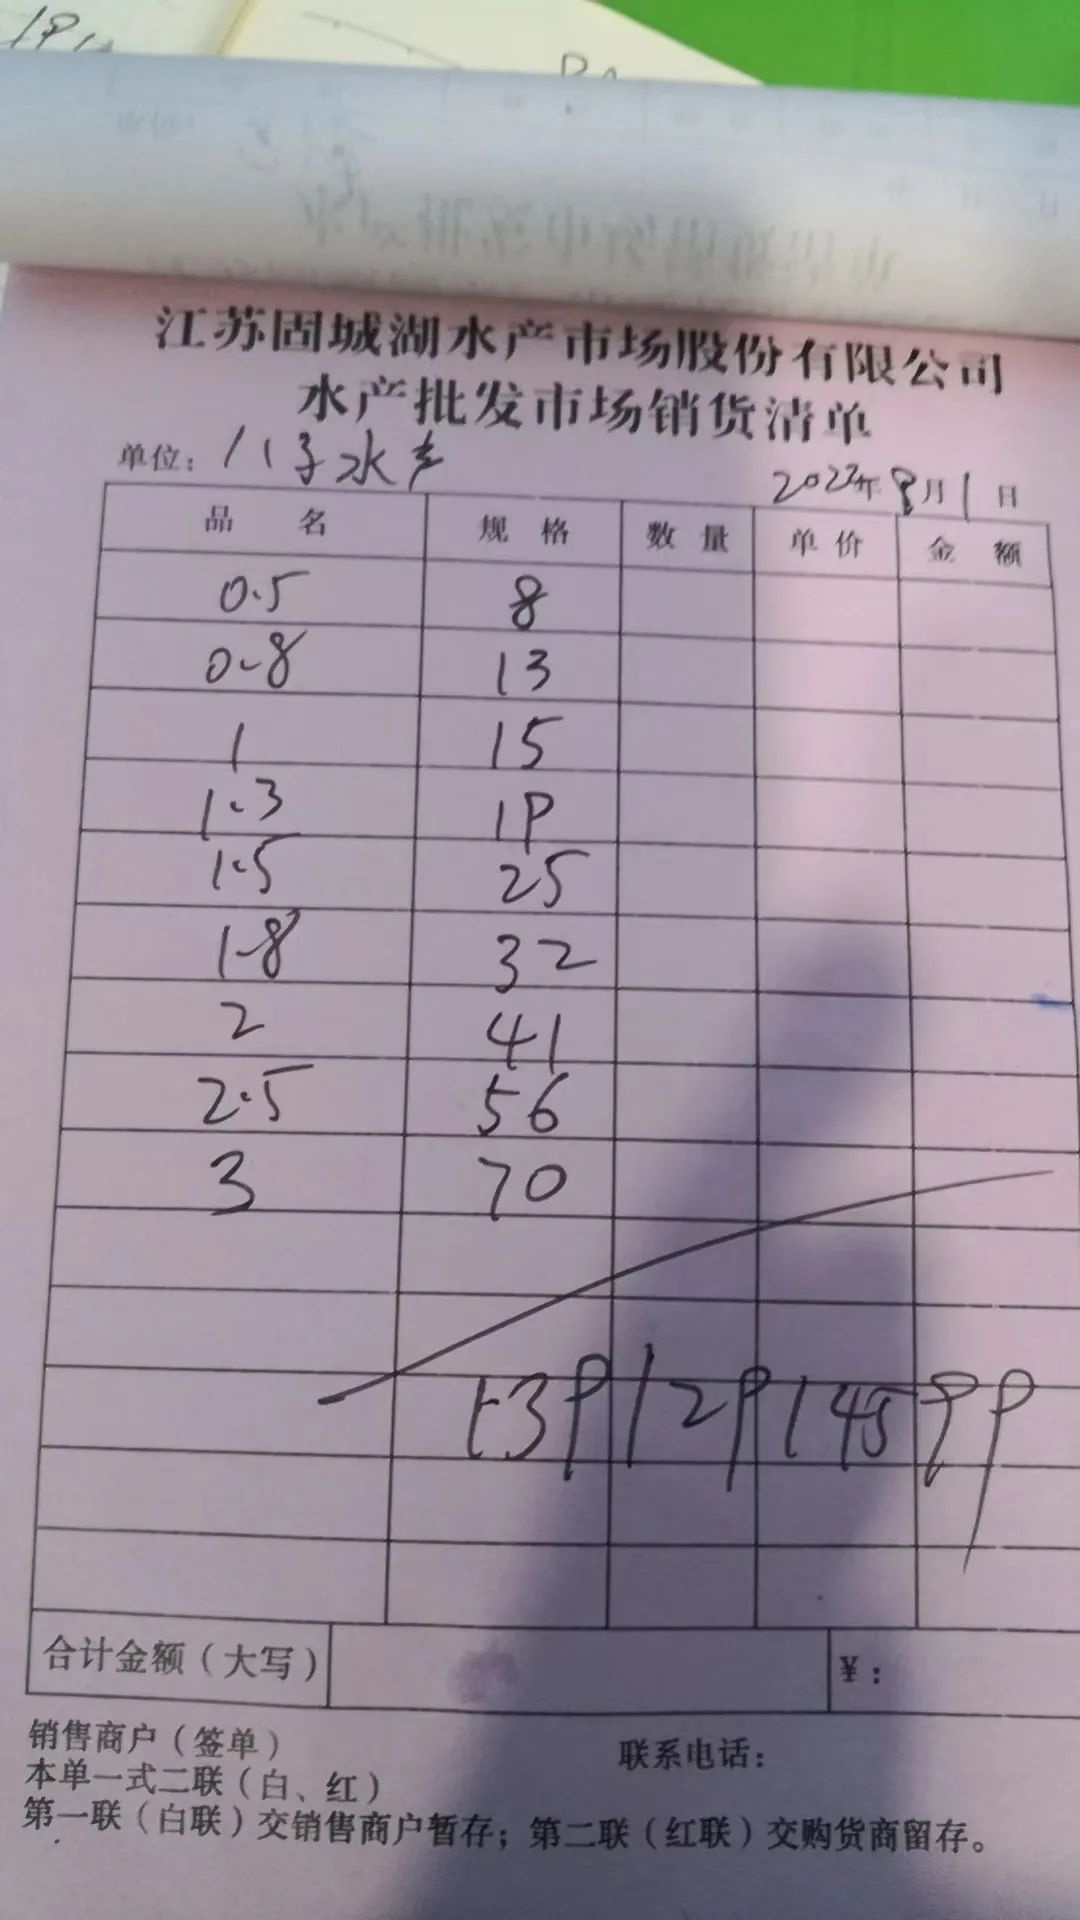 江苏固城湖水产市场股份有限公司
水产批发市场销货清单
单位：八子水产 2022年8月1日
品名 规格 数量 单价 金额
0.5 8
0.8 13
1 15
1.3 19
1.5 25
1.8 32
2 41
2.5 56
3 70
13912914599
合计金额（大写） ¥：
销售商户（签单） 联系电话：
本单一式二联（白、红）
第一联（白联）交销售商户暂存；第二联（红联）交购货商留存。